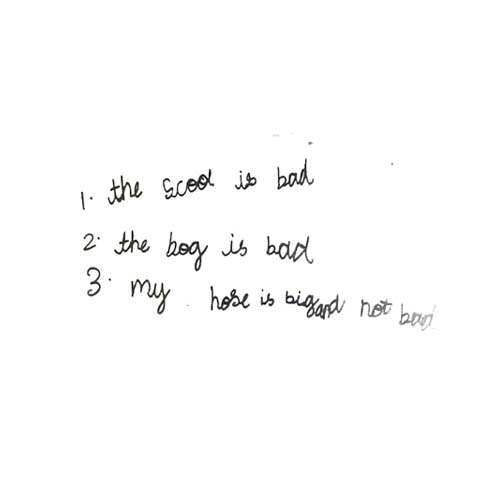 1. the scool is bad
2. the bog is bad
3. my hose is big and not bad